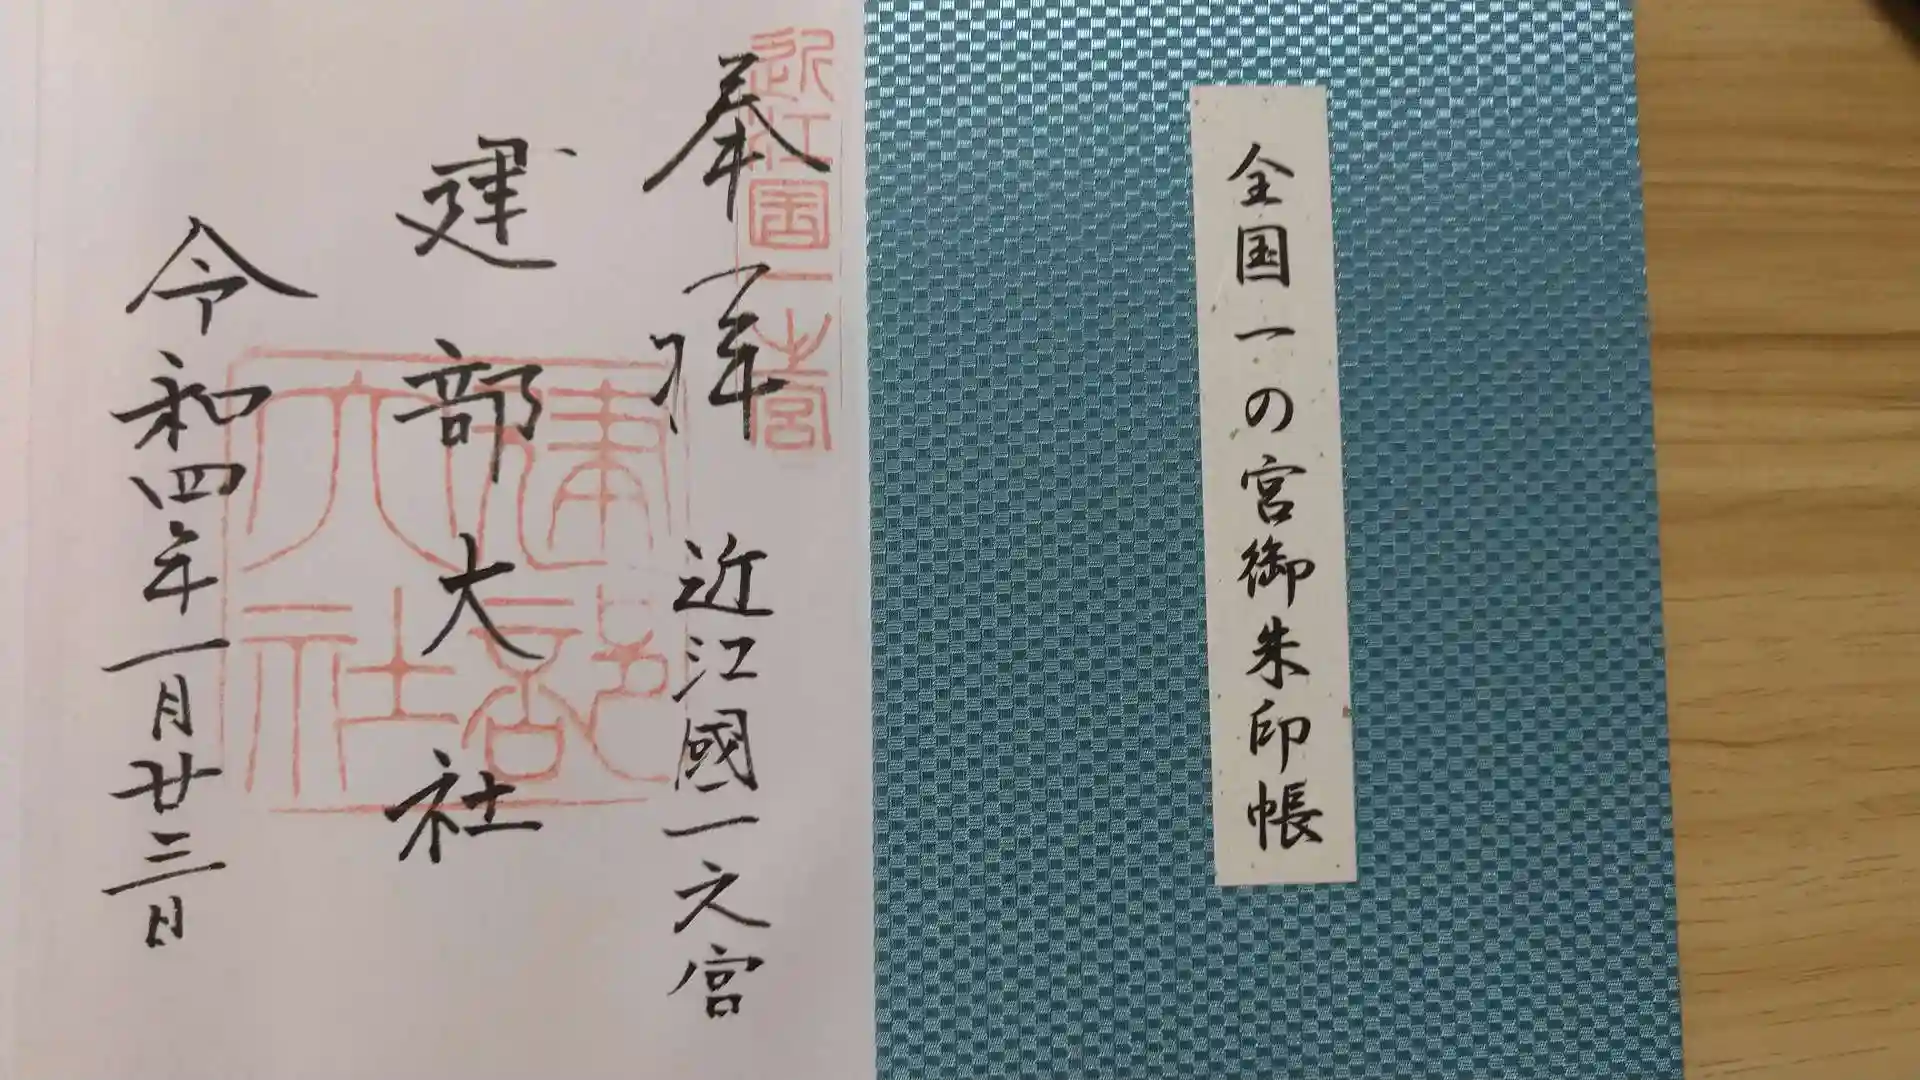 全国一の宮御朱印帳
奉拝 近江國一之宮
建部大社
令和四年一月廿三日
近江国一之宮
建部
大社